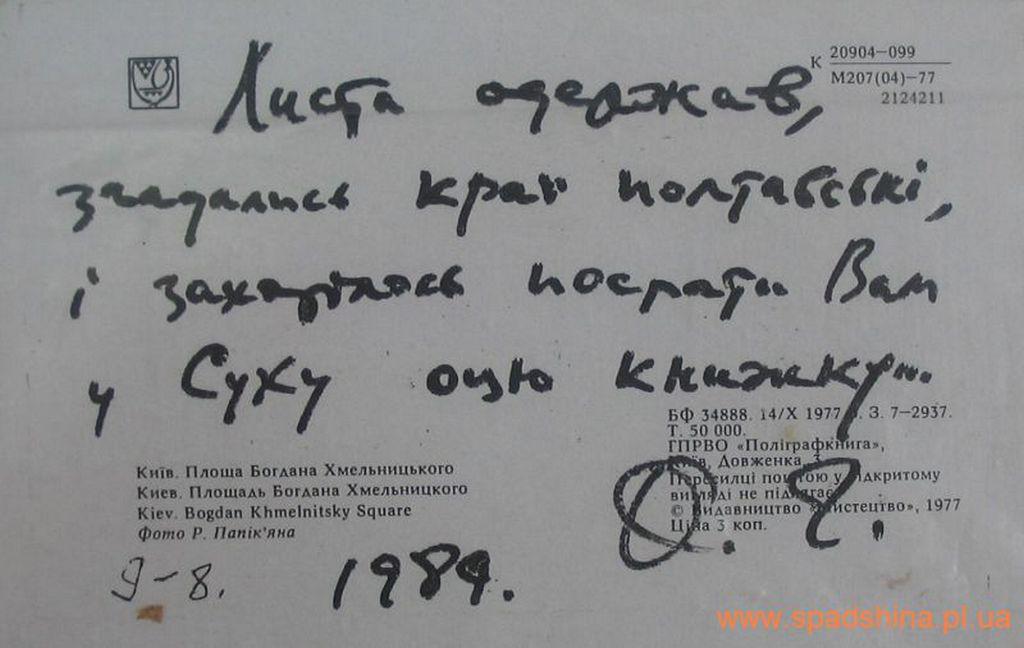 Листа одержав,
К 20904—099
М207(04)—77
2124211
згадались краї полтавські,
і захотілось послати Вам
у Суху оцю книжку...
БФ 34888. 14/X 1977 З. 7—2937.
Т. 50 000.
ГПРВО «Поліграфкнига»,
Київ, Довженка, 3
Пересилці поштою у відкритому
вигляді не підлягає
© Видавництво «Мистецтво», 1977
Ціна 3 коп.
Київ. Площа Богдана Хмельницького
Киев. Площадь Богдана Хмельницкого
Kiev. Bogdan Khmelnitsky Square
Фото Р. Папік'яна
О. Г.
9-8. 1984.
www.spadshina.pl.ua